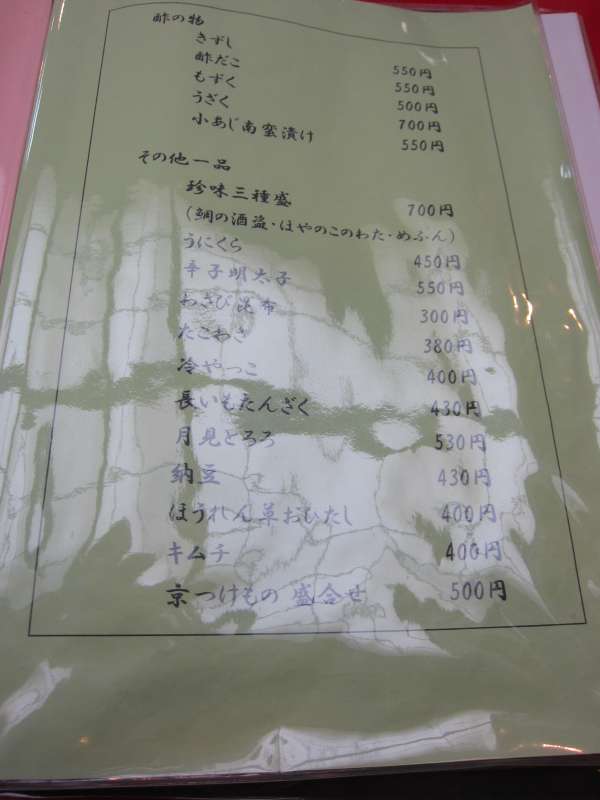 酢の物
きずし 550円
酢だこ 550円
もずく 500円
うざく 700円
小あじ南蛮漬け 550円
その他一品
珍味三種盛 700円
(鯛の酒盗・ほやのこのわた・めふん)
うにくら 450円
辛子明太子 550円
わさび昆布 300円
たこわさ 380円
冷やっこ 400円
長いもたんざく 430円
月見とろろ 530円
納豆 430円
ほうれん草おひたし 400円
キムチ 400円
京つけもの 盛合せ 500円